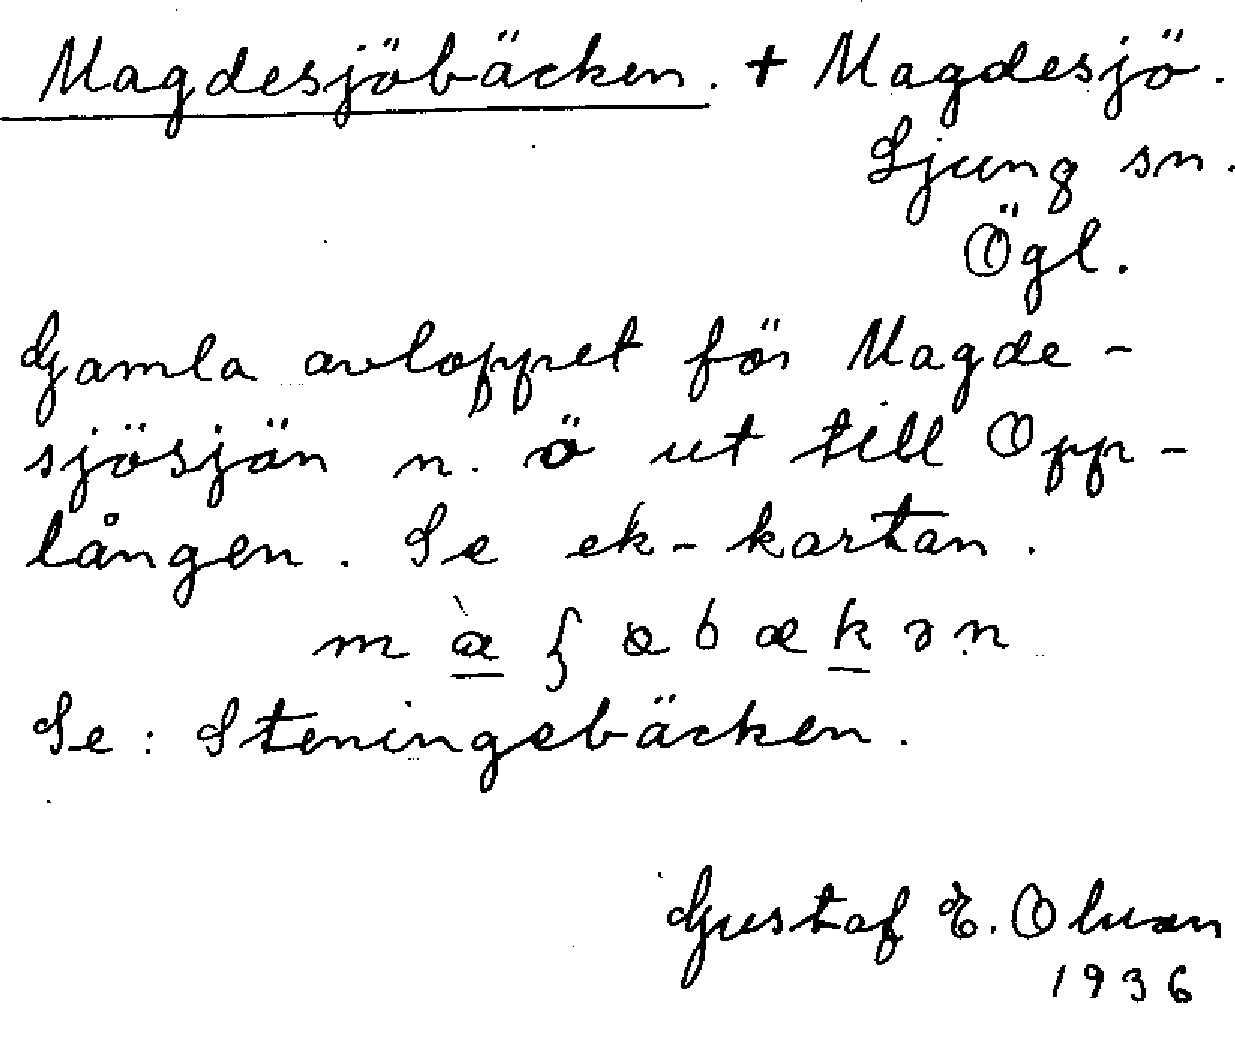 Magdesjöbäcken. + Magdesjö.
Ljung sn.
Ögl.
Gamla avloppet för Magde-
sjösjön n. ö ut till Opp-
lången. Se ek-kartan.
Se: Steningebäcken.
Gustaf E.
1936